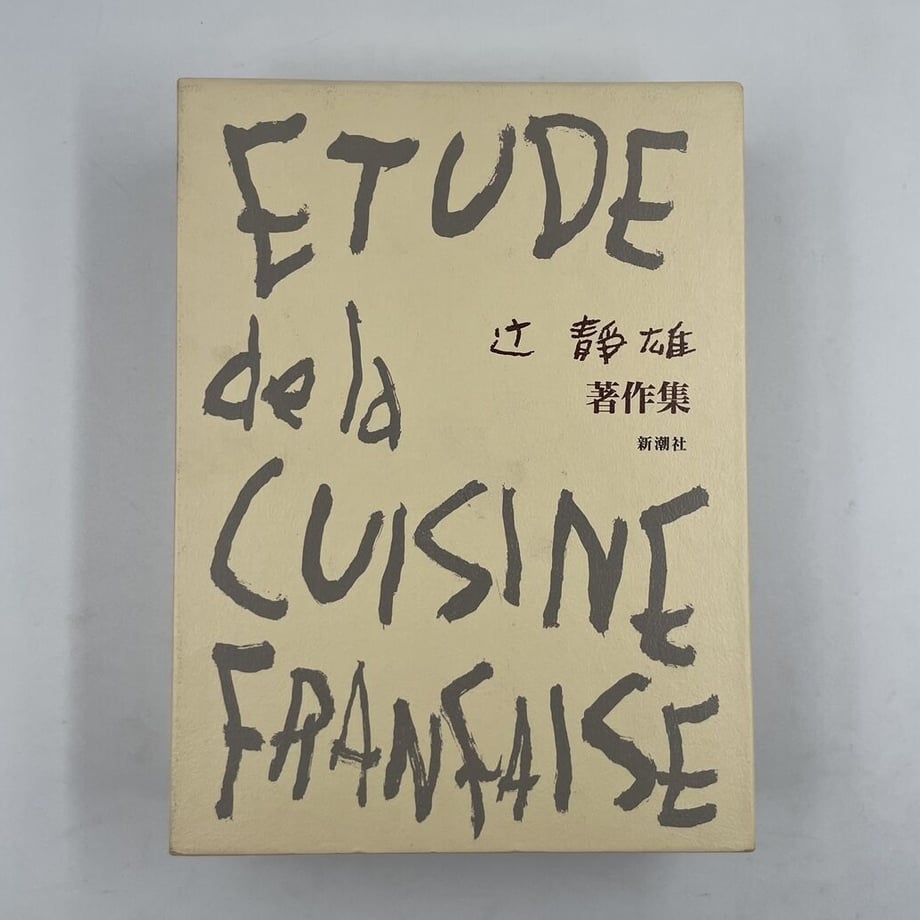 ETUDE
de la
辻 靜雄
著作集
新潮社
CUISINE
FRANÇAISE